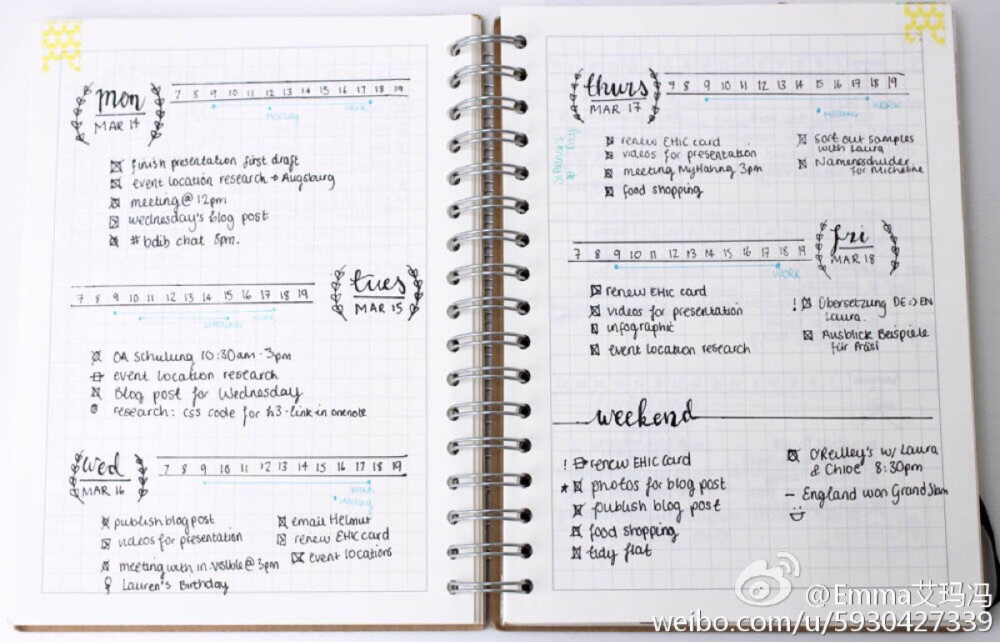 mon
MAR 14
7 8 9 10 11 12 13 14 15 16 17 18 19
Meeting
WORK
finish presentation first draft
event location research → Augsburg
meeting @ 12pm
wednesday's blog post
#bdib chat 8pm.
tues
MAR 15
7 8 9 10 11 12 13 14 15 16 17 18 19
WORK
OA Schulung 10:30am - 3pm
event location research
Blog post for Wednesday
research: css code for h3 - link in onenote
wed
MAR 16
7 8 9 10 11 12 13 14 15 16 17 18 19
WORK
Meeting
publish blog post
videos for presentation
meeting with in.visible @ 3pm
Lauren's Birthday
email Helmut
renew EHIC card
event locations
thurs
MAR 17
7 8 9 10 11 12 13 14 15 15 17 18 19
WORK
Meeting
St Patrick's Day
renew EHIC card
videos for presentation
meeting MyHanng 3pm
food shopping
sort out samples
with Laura
Namensschilder
for Micheline
fri
MAR 18
7 8 9 10 11 12 13 14 15 16 17 18 19
WORK
renew EHIC card
videos for presentation
infographic
event location research
! Übersetzung DE => EN
Laura.
Ausblick Beispiele
für Präsi
weekend
! renew EHIC card
* photos for blog post
publish blog post
food shopping
tidy flat
O'Reilley's w/ Laura
& Chloe 8:30pm
– England won Grand Slam
@Emma艾玛冯
weibo.com/u/5930427339